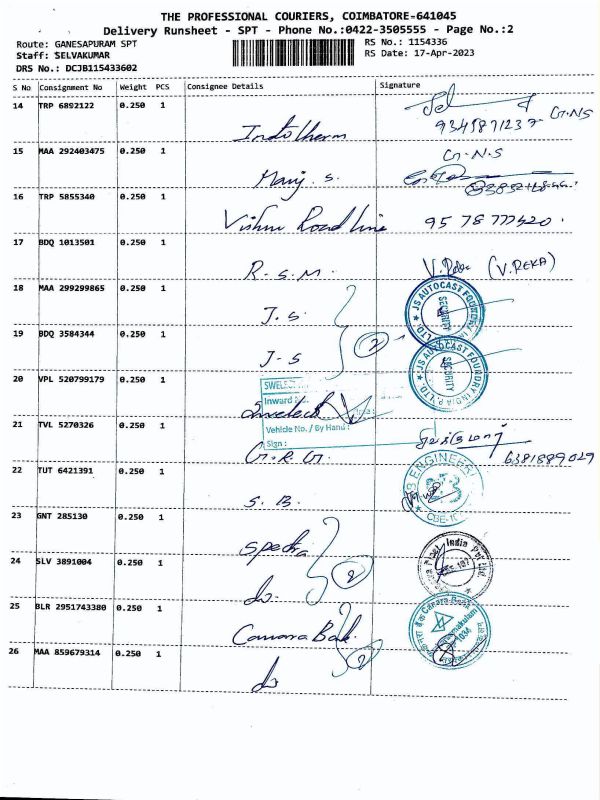 THE PROFESSIONAL COURIERS, COIMBATORE-641045
Delivery Runsheet - SPT - Phone No.:0422-3505555 - Page No.:2
Route: GANESAPURAM SPT RS No.: 1154336
Staff: SELVAKUMAR RS Date: 17-Apr-2023
DRS No.: DCJB115433602
S No Consignment No Weight PCS Consignee Details Signature
14 TRP 6892122 0.250 1
Indotherm
G.N.S
15 MAA 292403475 0.250 1
G.N.S
Manj. S.
16 TRP 5855340 0.250 1
Vishnu Roadline
17 BDQ 1013501 0.250 1
R.S.M. (V.REKA)
18 MAA 299299865 0.250 1
J.S. JS AUTOCAST FOUNDRY INDIA P. LTD. SECURITY
19 BDQ 3584344 0.250 1
J-S 2 JS AUTOCAST FOUNDRY INDIA P. LTD. SECURITY
20 VPL 520799179 0.250 1
Inward
Swelect
Vehicle No. / By Hand :
Sign :
21 TVL 5270326 0.250 1
G.R.G. 6381889029
22 TUT 6421391 0.250 1
S.B.
23 GNT 285130 0.250 1
Spectra
24 SLV 3891004 0.250 1
do. 2
25 BLR 2951743380 0.250 1
Canara Bak. Canara Bank
26 MAA 859679314 0.250 1
do 2